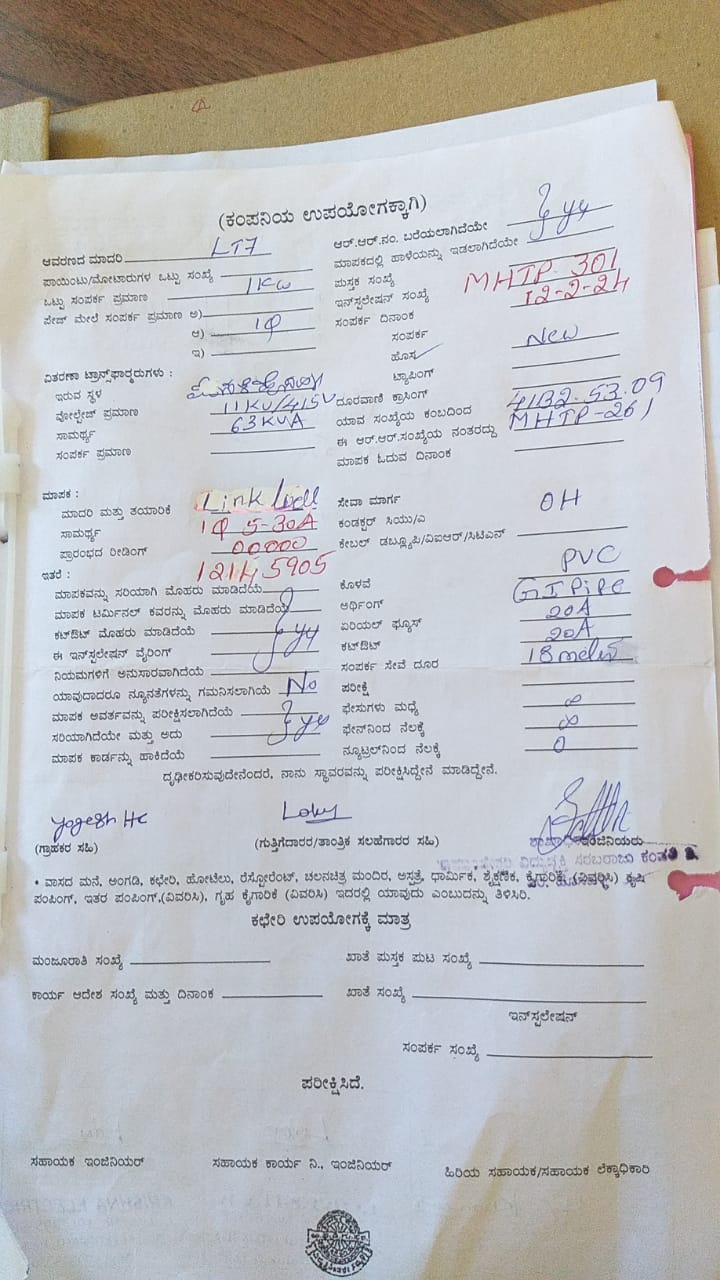 (ಕಂಪನಿಯ ಉಪಯೋಗಕ್ಕಾಗಿ)
ಆವರಣದ ಮಾದರಿ LT7
ಪಾಯಿಂಟು/ಮೋಟಾರುಗಳ ಒಟ್ಟು ಸಂಖ್ಯೆ
ಒಟ್ಟು ಸಂಪರ್ಕ ಪ್ರಮಾಣ 1KW
ಪೇಜ್ ಮೇಲೆ ಸಂಪರ್ಕ ಪ್ರಮಾಣ ಅ)
ಆ) 1Φ
ಇ)
ವಿತರಣಾ ಟ್ರಾನ್ಸ್‌ಫಾರ್‍ಮರುಗಳು :
ಇರುವ ಸ್ಥಳ
ವೋಲ್ಟೇಜ್ ಪ್ರಮಾಣ 11KV/415V
ಸಾಮರ್ಥ್ಯ 63KVA
ಸಂಪರ್ಕ ಪ್ರಮಾಣ
ಆರ್.ಆರ್.ನಂ. ಬರೆಯಲಾಗಿದೆಯೇ
ಮಾಪಕದಲ್ಲಿ ಹಾಳೆಯನ್ನು ಇಡಲಾಗಿದೆಯೇ
ಪುಸ್ತಕ ಸಂಖ್ಯೆ
ಇನ್‌ಸ್ಟಲೇಷನ್ ಸಂಖ್ಯೆ MHTP 301
ಸಂಪರ್ಕ ದಿನಾಂಕ 12-2-24
ಸಂಪರ್ಕ
ಹೊಸ New
ಟ್ಯಾಪಿಂಗ್
ದೂರವಾಣಿ ಕ್ರಾಸಿಂಗ್
ಯಾವ ಸಂಖ್ಯೆಯ ಕಂಬದಿಂದ 4132.53.09
ಈ ಆರ್.ಆರ್.ಸಂಖ್ಯೆಯ ನಂತರದ್ದು MHTP-261
ಮಾಪಕ ಓದುವ ದಿನಾಂಕ
ಮಾಪಕ :
ಮಾದರಿ ಮತ್ತು ತಯಾರಿಕೆ Link Well
ಸಾಮರ್ಥ್ಯ 1Φ 5-30A
ಪ್ರಾರಂಭದ ರೀಡಿಂಗ್ 00000
ಇತರೆ : 12145905
ಮಾಪಕವನ್ನು ಸರಿಯಾಗಿ ಮೊಹರು ಮಾಡಿದೆಯೆ
ಮಾಪಕ ಟರ್ಮಿನಲ್ ಕವರನ್ನು ಮೊಹರು ಮಾಡಿದೆಯೆ
ಕಟ್‌ಔಟ್ ಮೊಹರು ಮಾಡಿದೆಯೆ
ಈ ಇನ್‌ಸ್ಟಲೇಷನ್ ವೈರಿಂಗ್
ನಿಯಮಗಳಿಗೆ ಅನುಸಾರವಾಗಿದೆಯೆ
ಯಾವುದಾದರೂ ನ್ಯೂನತೆಗಳನ್ನು ಗಮನಿಸಲಾಗಿಯೆ No
ಮಾಪಕ ಅವರ್ತವನ್ನು ಪರೀಕ್ಷಿಸಲಾಗಿದೆಯೆ
ಸರಿಯಾಗಿದೆಯೇ ಮತ್ತು ಅದು
ಮಾಪಕ ಕಾರ್ಡನ್ನು ಹಾಕಿದೆಯೆ
ಸೇವಾ ಮಾರ್ಗ OH
ಕಂಡಕ್ಟರ್ ಸಿಯು/ಎ
ಕೇಬಲ್ ಡಬ್ಲ್ಯೂಪಿ/ವಿಐಆರ್/ಸಿಟಿಎಸ್
ಕೊಳವೆ PVC
ಅರ್ಥಿಂಗ್ GI Pipe
ಏರಿಯಲ್ ಫ್ಯೂಸ್ 20A
ಕಟ್‌ಔಟ್ 20A
ಸಂಪರ್ಕ ಸೇವೆ ದೂರ 18 meter
ಪರೀಕ್ಷೆ
ಫೇಸುಗಳು ಮಧ್ಯೆ ∞
ಫೇಸ್‌ನಿಂದ ನೆಲಕ್ಕೆ ∞
ನ್ಯೂಟ್ರಲ್‌ನಿಂದ ನೆಲಕ್ಕೆ 0
ದೃಢೀಕರಿಸುವುದೇನೆಂದರೆ, ನಾನು ಸ್ಥಾವರವನ್ನು ಪರೀಕ್ಷಿಸಿದ್ದೇನೆ ಮಾಡಿದ್ದೇನೆ.
Yogesh HC
(ಗ್ರಾಹಕರ ಸಹಿ)
(ಗುತ್ತಿಗೆದಾರರ/ತಾಂತ್ರಿಕ ಸಲಹೆಗಾರರ ಸಹಿ)
• ವಾಸದ ಮನೆ, ಅಂಗಡಿ, ಕಛೇರಿ, ಹೋಟೆಲು, ರೆಸ್ಟೋರೆಂಟ್, ಚಲನಚಿತ್ರ ಮಂದಿರ, ಅಸ್ಪತ್ರೆ, ಧಾರ್ಮಿಕ, ಶೈಕ್ಷಣಿಕ, ಕೈಗಾರಿಕೆ, (ವಿವರಿಸಿ) ಕೃಷಿ
ಪಂಪಿಂಗ್, ಇತರ ಪಂಪಿಂಗ್,(ವಿವರಿಸಿ), ಗೃಹ ಕೈಗಾರಿಕೆ (ವಿವರಿಸಿ) ಇದರಲ್ಲಿ ಯಾವುದು ಎಂಬುದನ್ನು ತಿಳಿಸಿರಿ.
ಕಛೇರಿ ಉಪಯೋಗಕ್ಕೆ ಮಾತ್ರ
ಮಂಜೂರಾತಿ ಸಂಖ್ಯೆ
ಖಾತೆ ಪುಸ್ತಕ ಪುಟ ಸಂಖ್ಯೆ
ಕಾರ್ಯ ಆದೇಶ ಸಂಖ್ಯೆ ಮತ್ತು ದಿನಾಂಕ
ಖಾತೆ ಸಂಖ್ಯೆ
ಇನ್‌ಸ್ಟಲೇಷನ್
ಸಂಪರ್ಕ ಸಂಖ್ಯೆ
ಪರೀಕ್ಷಿಸಿದೆ.
ಸಹಾಯಕ ಇಂಜಿನಿಯರ್
ಸಹಾಯಕ ಕಾರ್ಯ ನಿ., ಇಂಜಿನಿಯರ್
ಹಿರಿಯ ಸಹಾಯಕ/ಸಹಾಯಕ ಲೆಕ್ಕಾಧಿಕಾರಿ